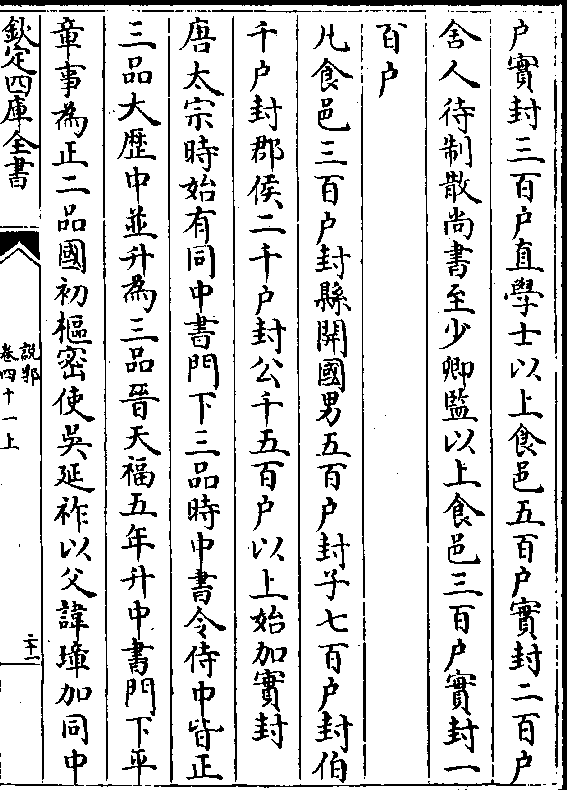 户實封三百户直學士以上食邑五百户實封二百户
舍人待制散尚書至少卿監以上食邑三百户實封一
百户
凡食邑三百户封縣開國男五百户封子七百户封伯
千户封郡侯二千户封公千五百户以上始加實封
唐太宗時始有同中書門下三品時中書令侍中皆正
三品大歴中並升為三品晉天福五年升中書門下平
章事為正二品國初樞密使吳延祚以父諱璋加同中
欽定四庫全書
說郛
卷四十一上
二十二